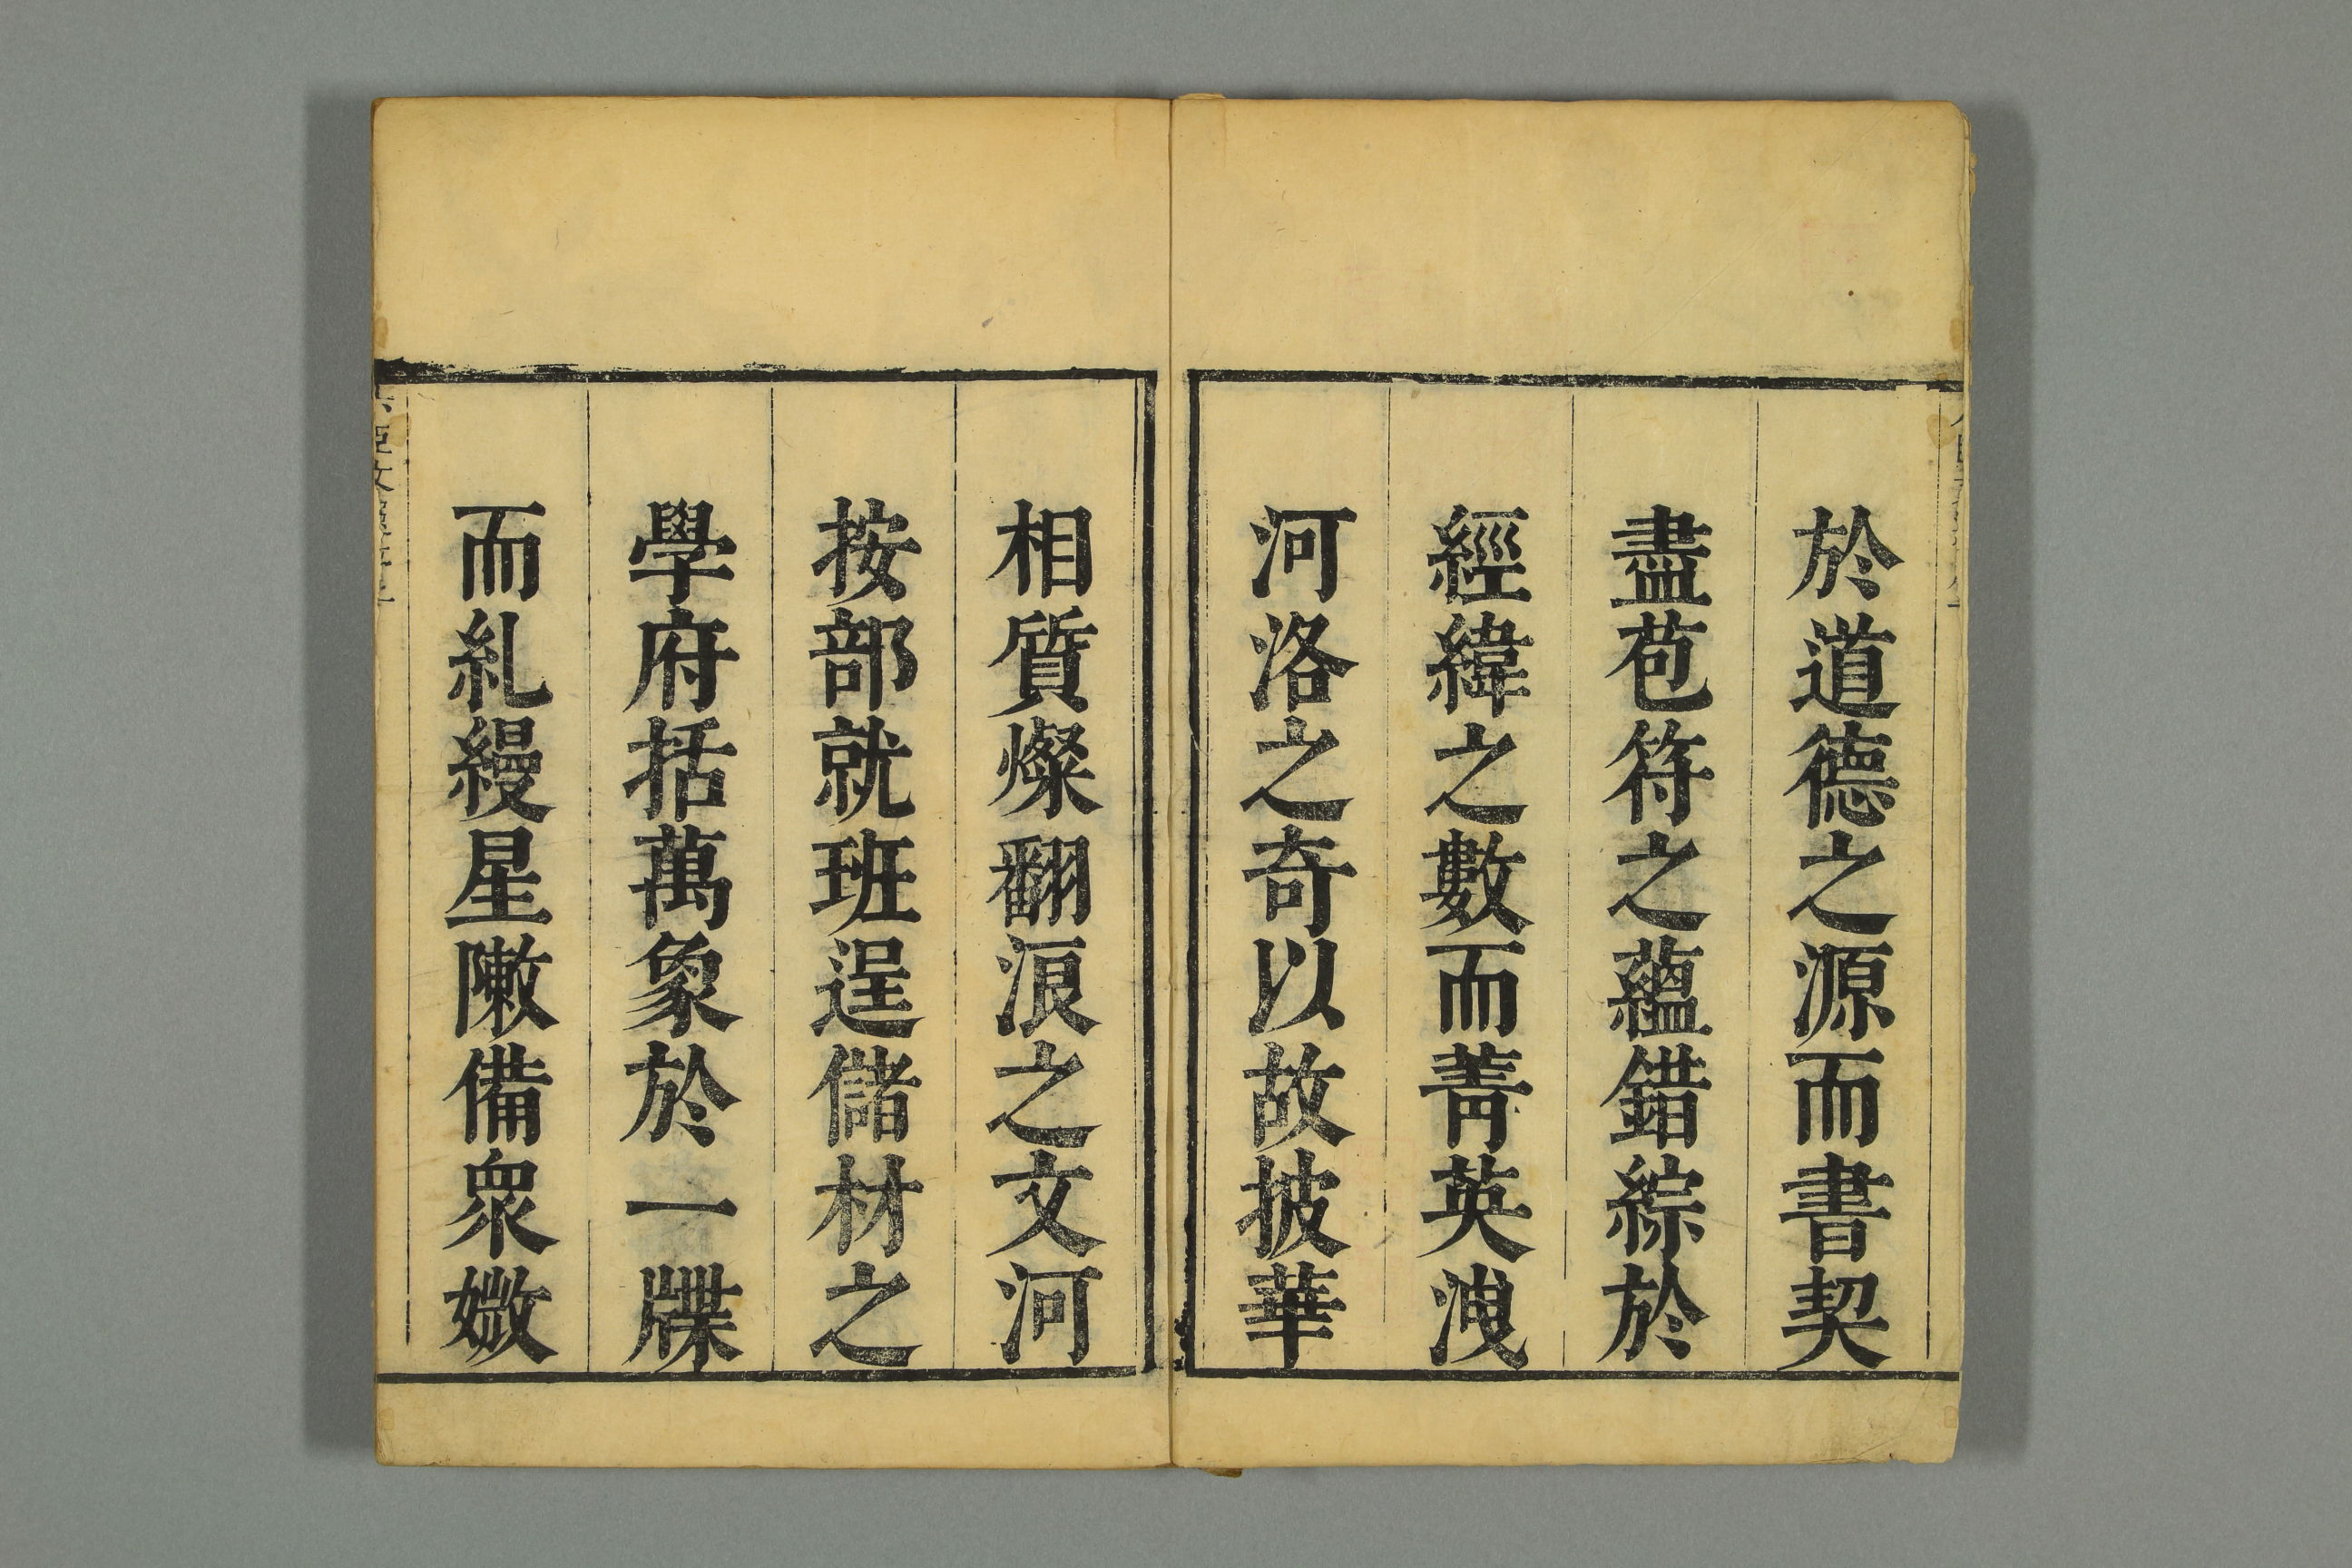 於道德之源而書契
盡苞符之蘊錯綜於
經緯之數而菁英洩
河洛之奇以故披華
相質燦翻浪之文河
按部就班逞儲材之
學府括萬象於一牒
而糺縵星敶備眾媺